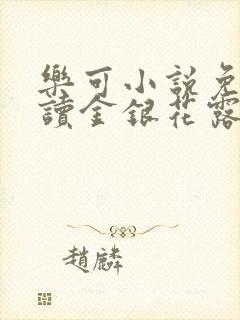 樂可小說免
讀金銀花露
趙麟